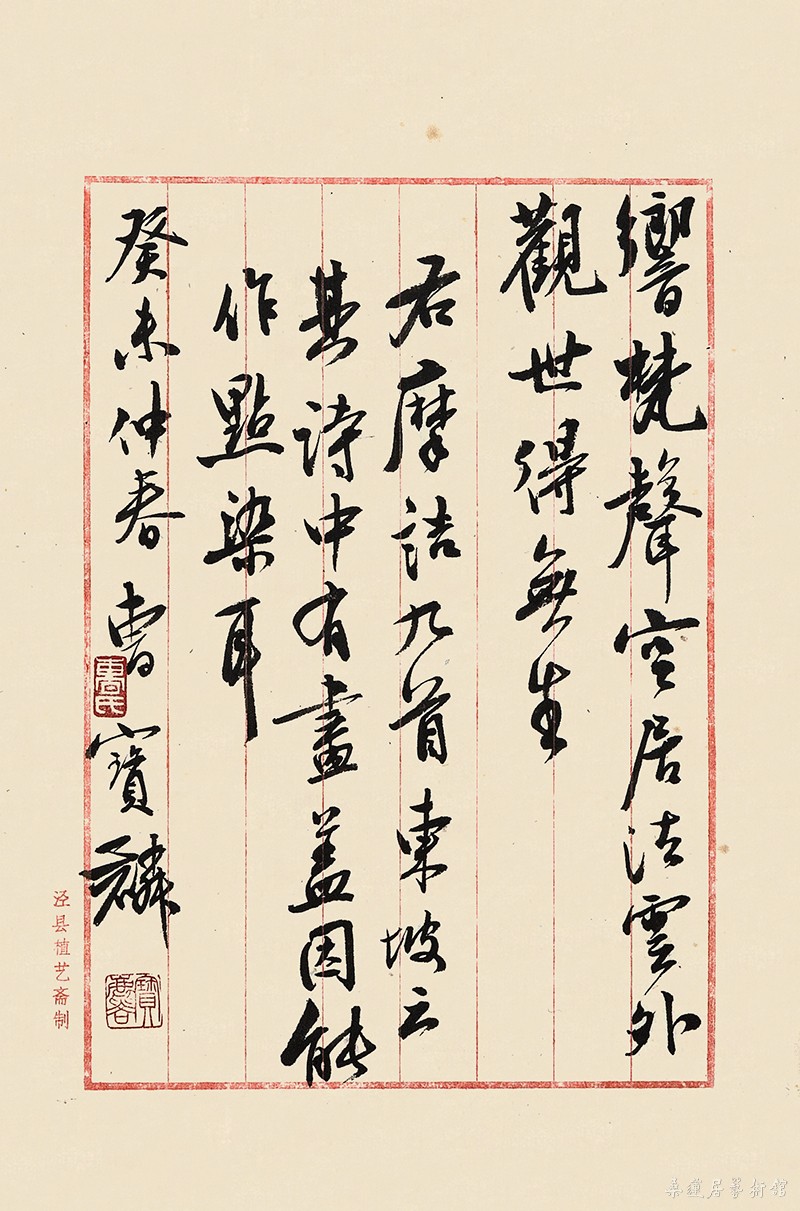 響梵聲空居法雲外
觀世得無生
右摩詰九首東坡云
其詩中有畫蓋因能
作點染耳
癸未仲春曹寶麟
曹氏
泾县植艺斋制
桑蓮居藝術館